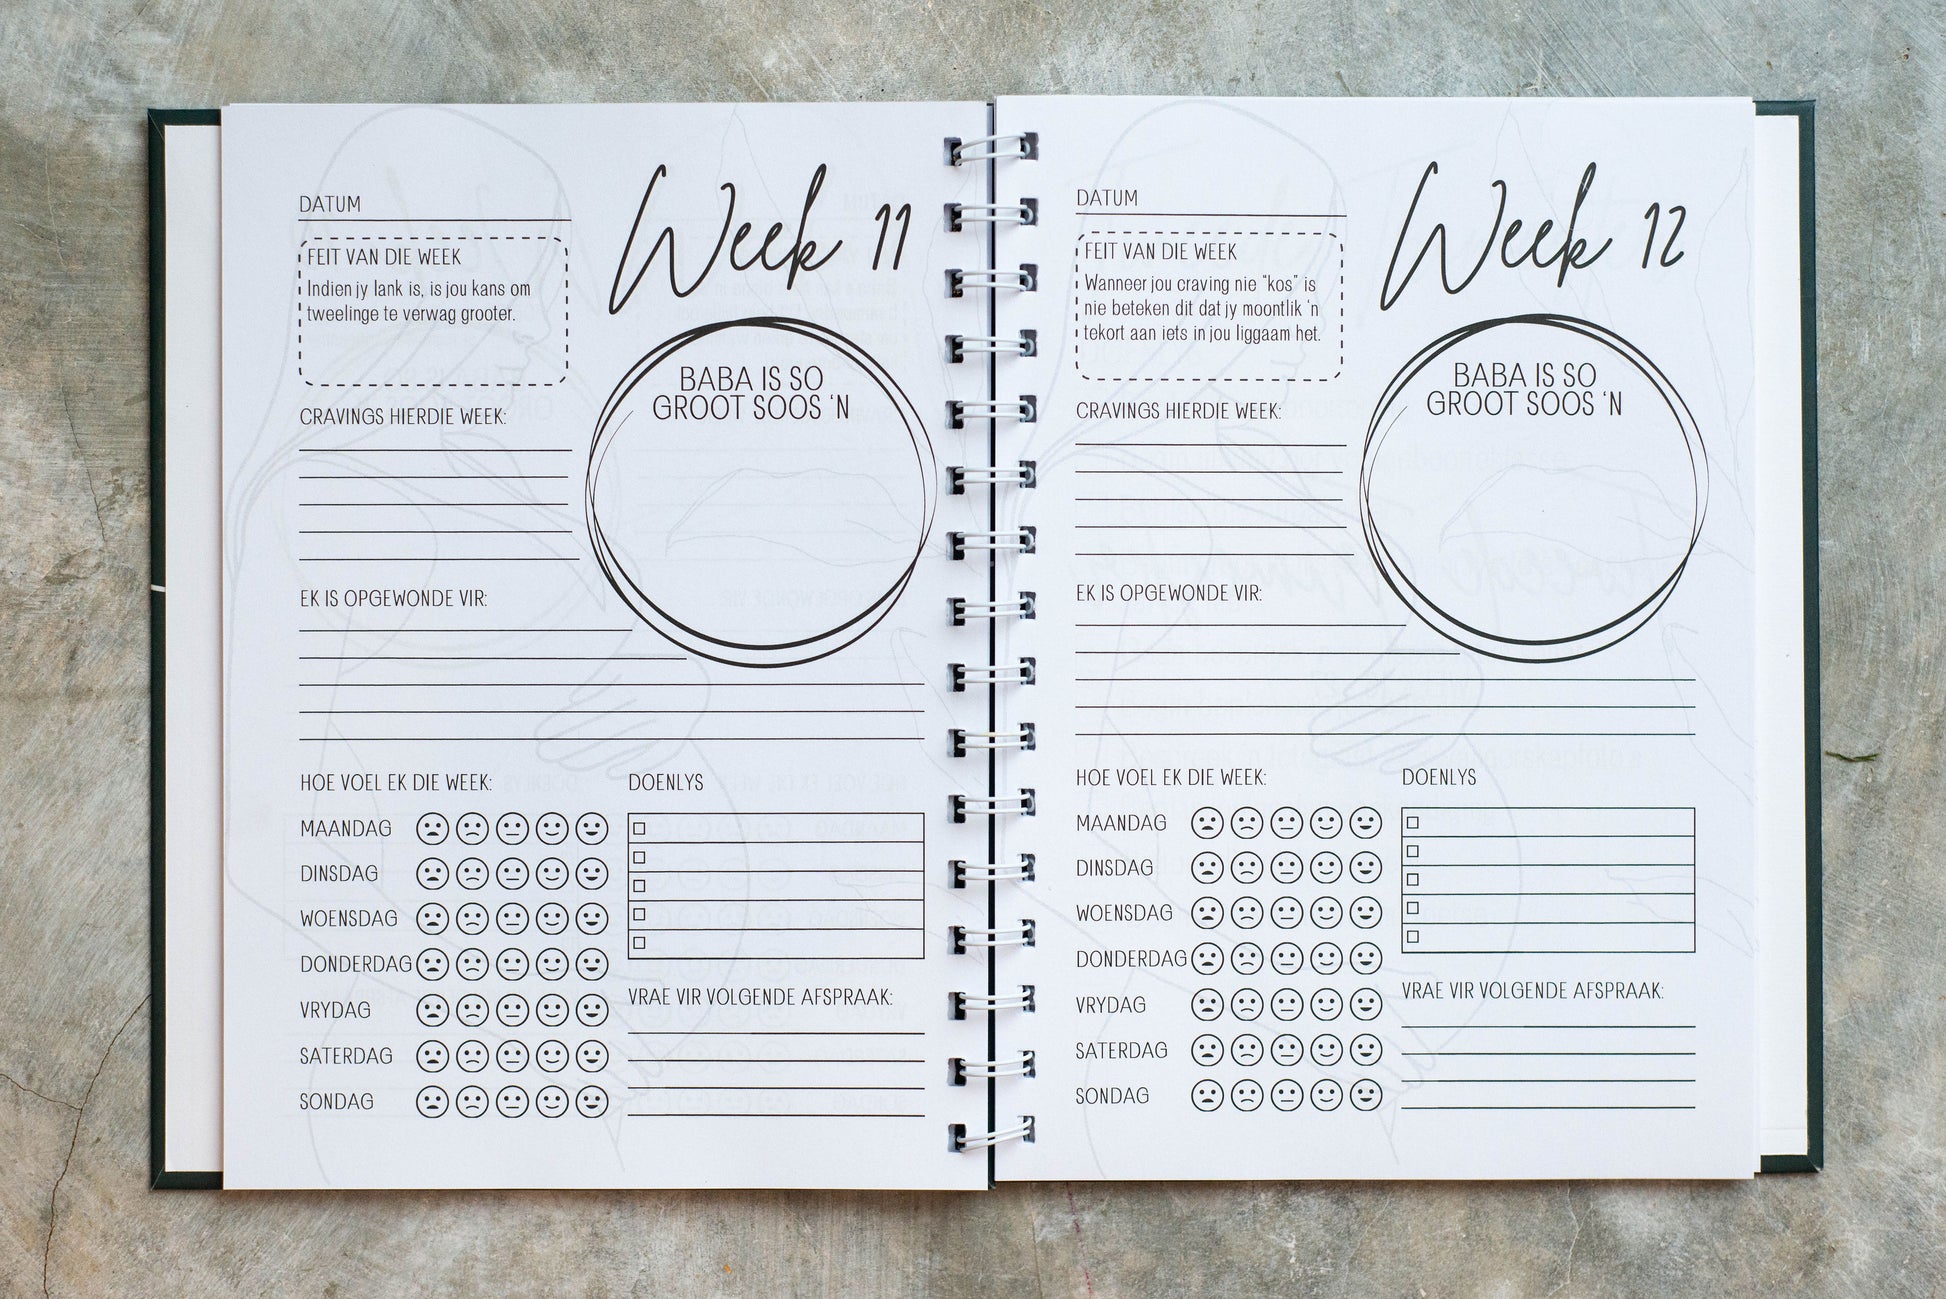 Week 11
DATUM
FEIT VAN DIE WEEK
Indien jy lank is, is jou kans om
tweelinge te verwag grooter.
BABA IS SO
GROOT SOOS ‘N
CRAVINGS HIERDIE WEEK:
EK IS OPGEWONDE VIR:
HOE VOEL EK DIE WEEK:
MAANDAG
DINSDAG
WOENSDAG
DONDERDAG
VRYDAG
SATERDAG
SONDAG
DOENLYS
VRAE VIR VOLGENDE AFSPRAAK:
Week 12
DATUM
FEIT VAN DIE WEEK
Wanneer jou craving nie “kos” is
nie beteken dit dat jy moontlik ‘n
tekort aan iets in jou liggaam het.
BABA IS SO
GROOT SOOS ‘N
CRAVINGS HIERDIE WEEK:
EK IS OPGEWONDE VIR:
HOE VOEL EK DIE WEEK:
MAANDAG
DINSDAG
WOENSDAG
DONDERDAG
VRYDAG
SATERDAG
SONDAG
DOENLYS
VRAE VIR VOLGENDE AFSPRAAK: